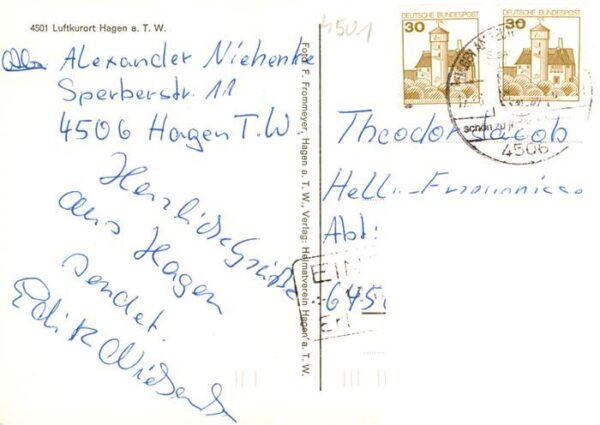 4501 Luftkurort Hagen a. T. W.
Alexander Niehenke
Sperberstr. 11
4506 Hagen T.W.
Herzliche Grüße
aus Hagen
sendet
Foto: F. Frommeyer, Hagen a. T. W., Verlag: Heimatverein Hagen a. T. W.
4501
30 DEUTSCHE BUNDESPOST
30 DEUTSCHE BUNDESPOST
schön zu
4506
Theodor Jacob
Abt.
EIN